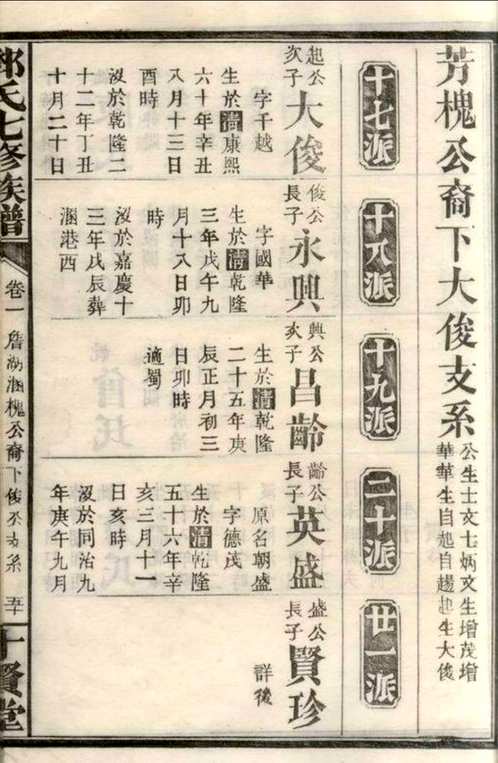 芳槐公裔下大俊支系
公生士文士炳文生增茂增
華華生自起自趨起生大俊
十七派
十八派
十九派
二十派
廿一派
起公
次子
大俊
字千越
生於清康熙
六十年辛丑
八月十三日
酉時
沒於乾隆二
十二年丁丑
十月二十日
俊公
長子
永興
字國華
生於清乾隆
三年戊午九
月十八日卯
時
沒於嘉慶十
三年戊辰葬
港西
興公
次子
昌齡
生於清乾隆
二十五年庚
辰正月初三
日卯時
適蜀
齡公
長子
英盛
原名朝盛
字德茂
生於清乾隆
五十六年辛
亥三月十一
日亥時
沒於同治九
年庚午九月
盛公
長子
賢珍
詳後
氏七修族譜
卷一
湖槐公裔下俊公支系
十賢堂